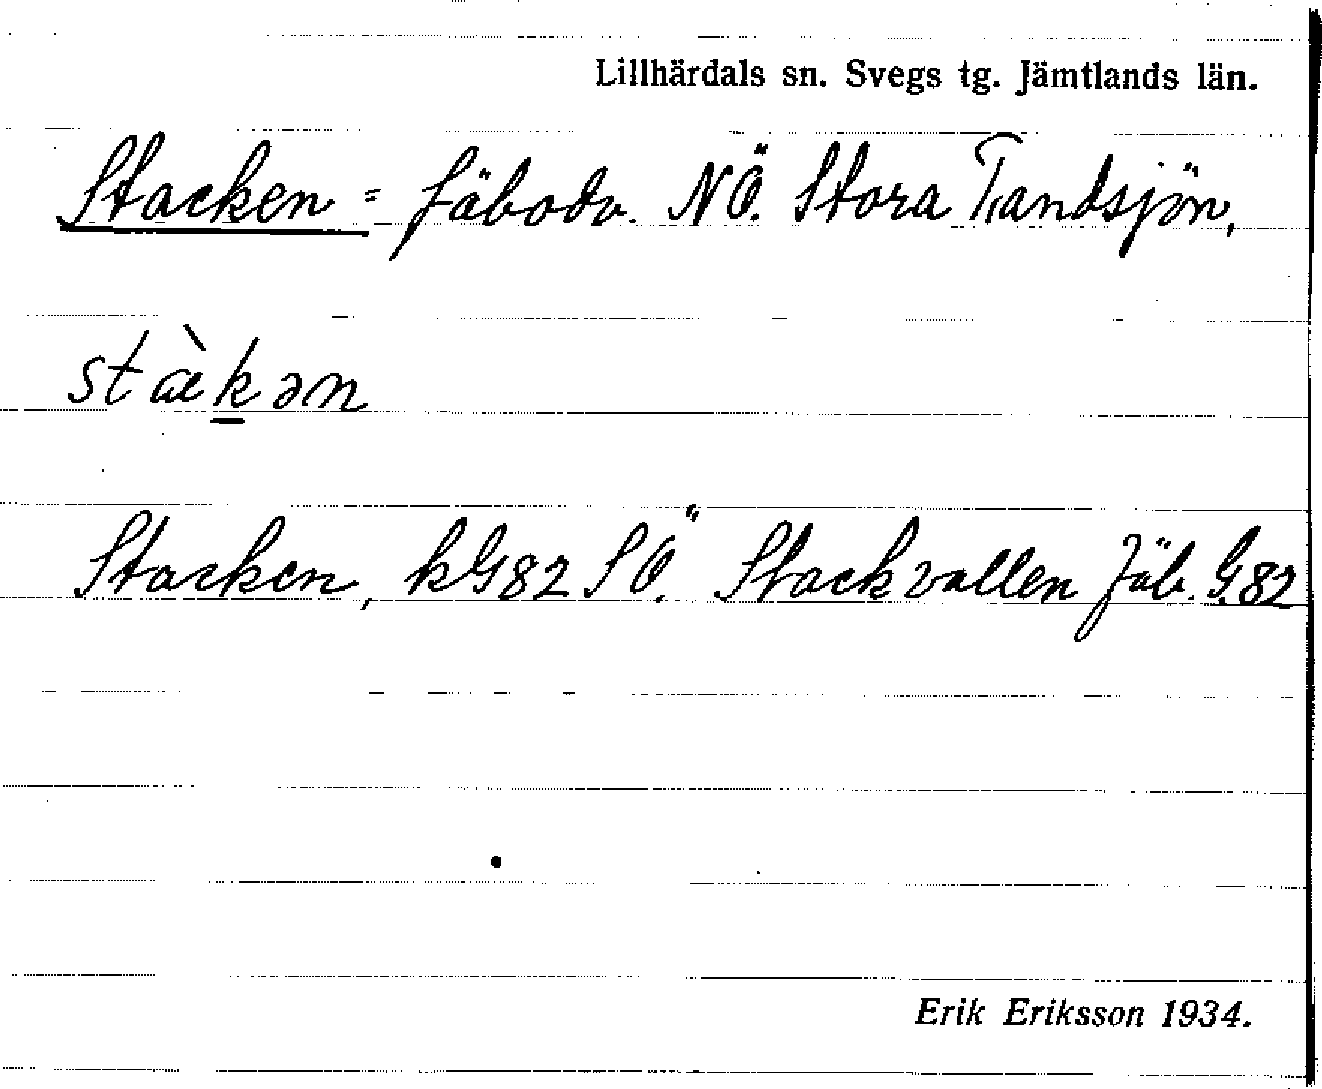 Lillhärdals sn. Svegs tg. Jämtlands län.
Stacken = fäbodv. NÖ. Stora Tandsjön,
stæ̀k̲ən
Stacken, kG82 SÖ. Stackvallen Fäb. G.82
Erik Eriksson 1934.